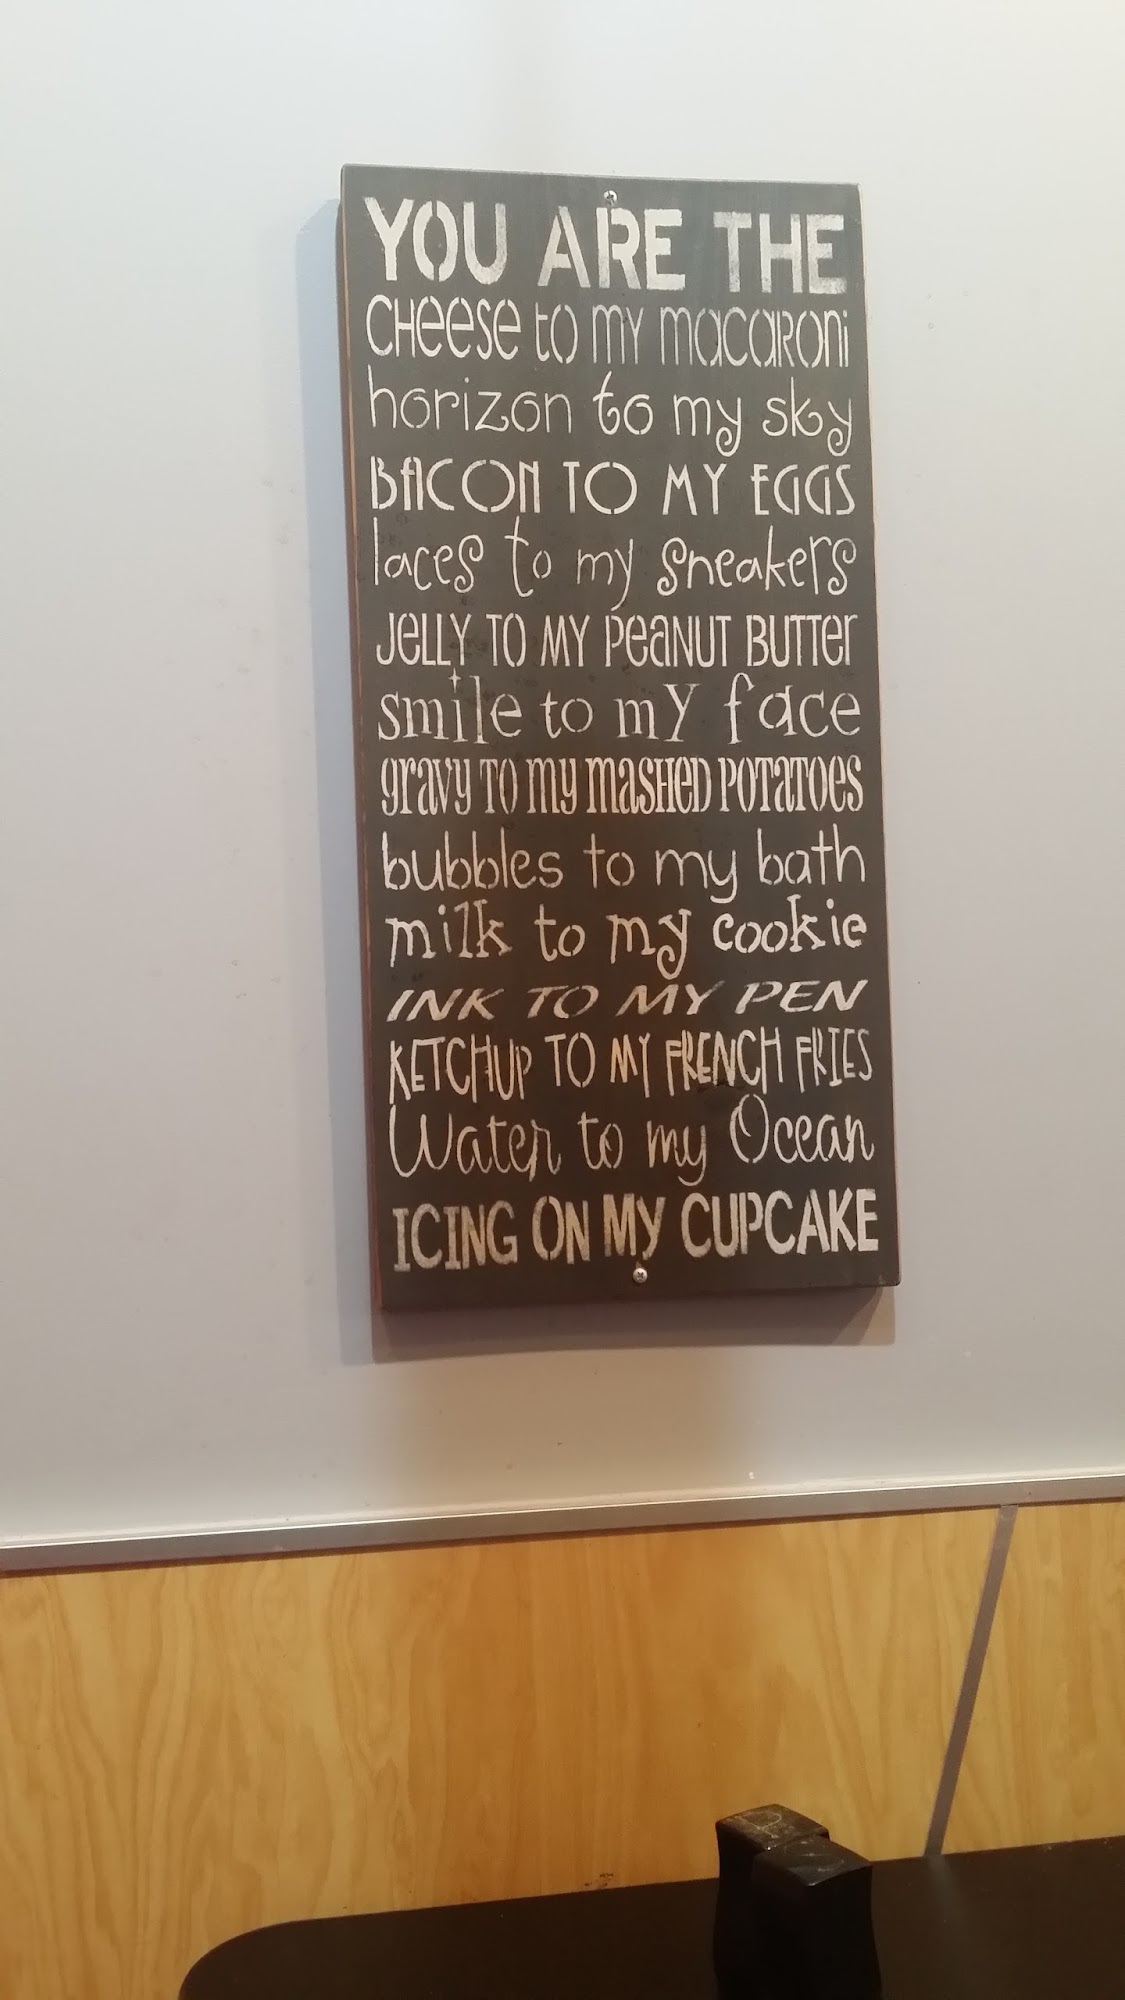 YOU ARE THE
cheese to my macaroni
horizon to my sky
BACON TO MY EGGS
laces to my sneakers
Jelly to my peanut butter
smile to my face
gravy to my mashed potatoes
bubbles to my bath
milk to my cookie
INK TO MY PEN
KETCHUP TO MY FRENCH FRIES
Water to my Ocean
ICING ON MY CUPCAKE